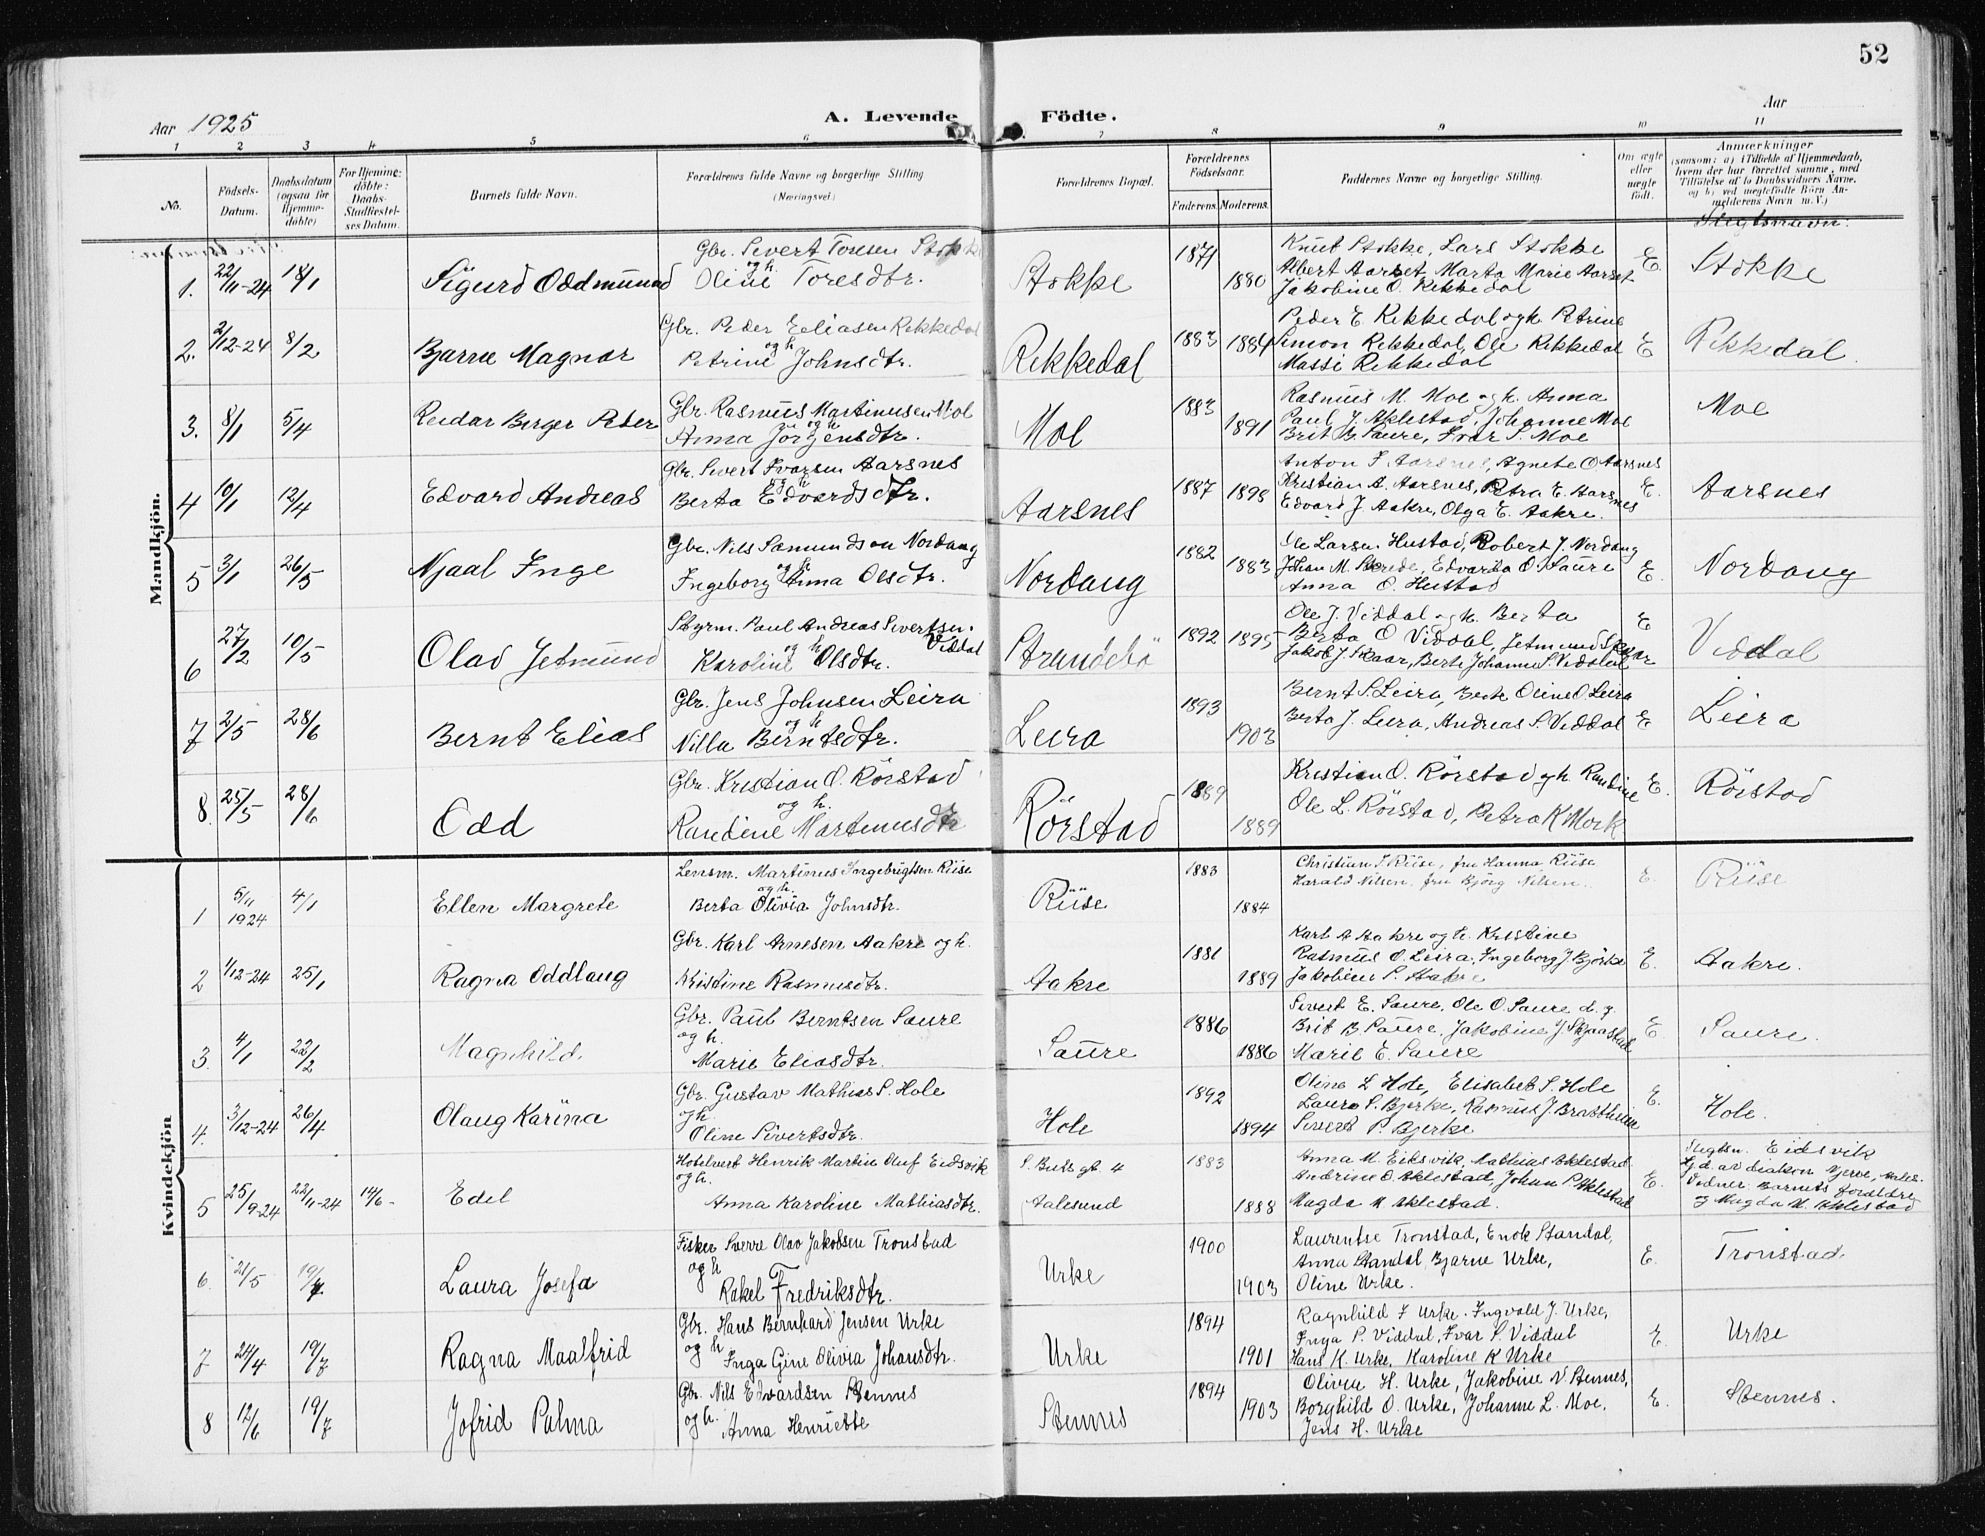 52
Aar 1925
A. Levende Födte.
Aar
1 2 3 4 5 6 7 8 9 10 11
No.
Födsels-Datum.
Daabsdatum (ogsaa for Hjemme-döbte)
For Hjemme-döbte: Daabs-Stadfæstel-ses Datum.
Barnets fulde Navn.
Forældrenes fulde Navne og borgerlige Stilling
(Næringsvei.)
Forældrenes Bopæl.
Forældrenes Födselsaar.
Faderens. Moderens.
Faddernes Navne og borgerlige Stilling.
Om ægte eller uægte födt.
Anmærkninger
(saasom: a) i Tilfælde af Hjemmedaab, hvem der har forrettet samme, med Tilföielse af to Daabsvidners Navne, og b) ved uægtefödte Börn An-melderens Navn m. V.)
Slegtsnavn:
Mandkjön.
1. 22/11-24 18/1 Sigurd Oddmund
Gbr. Sivert Toresen Stokke
og h.
Oline Toresdtr.
Stokke 1871 1880
Knut Stokke, Lars Stokke
Albert Aarset, Marta Marie Aarset
Jakobine O. Rekkedal
E. Stokke
2. 2/12-24 8/2 Bjarne Magnar
Gbr. Peder Eliasen Rekkedal
og h
Petrine Johnsdtr.
Rekkedal 1883 1884
Peder E. Rekkedal og h. Petrine
Simon Rekkedal, Ole Rekkedal
Massi Rekkedal
E Rekkedal.
3. 8/1 5/4 Reidar Berger Peter
Gbr. Rasmus Martinusen Moe
og h
Anna Jörgensdtr.
Moe 1883 1891
Rasmus M. Moe og h. Anna
Paul J. Aklestad, Johanne Moe
Brit B. Saure, Ivar S. Moe
Moe
4 10/1 12/4 Edvard Andreas
Gbr. Sivert Ivarsen Aarsnes
og h
Berta Edvardsdtr.
Aarsnes 1887 1898
Anton I. Aarsnes, Agnete O Aarsnes
Kristian A. Aarsnes, Petra E. Aarsnes
Edvard J Aakre, Olga E. Aakre.
E. Aarsnes
5 3/1 26/5 Njaal Inge
Gbr. Nils Samundson Nordang
og h
Ingeborg Anna Olsdtr.
Nordang 1882 1883
Ole Larsen Hustad, Robert J. Nordang
Johan M. Skrede, Edvarda O Saure
Anna O. Hustad
E. Nordang
6 27/2 10/5 Olav Jetmund
Styrm. Paul Andreas Sivertsen
Viddal
og h
Karoline Olsdtr.
Strandebö 1892 1895
Ole J. Viddal og h. Berta
Berta O Viddal, Jetmund Skaar
Jakob J. Skaar, Berte Johanne S. Viddal
E Viddal
7 2/5 28/6 Bernt Elias
Gbr. Jens Johnsen Leira
og h
Nilla Berntsdtr.
Leira 1893 1903
Bernt S. Leira, Berte Oline O. Leira
Berta J. Leira, Andreas S. Viddal
E Leira
8. 25/5 28/6 Odd
Gbr. Kristian O. Rörstad
og h.
Randine Martinusdtr
Rörstad 1889 1889
Kristian O. Rörstad og h. Randine
Ole L. Rörstad, Petra K Mork
E. Rörstad
Kvindekjön
1 5/11 1924 4/1 Ellen Margrete
Lensm. Martinus Ingebrigtsen Riise
og h.
Berta Olivia Johnsdtr.
Riise 1883 1884
Christian J. Riise, fru Hanna Riise
Harald Nilsen, fru Bjorg Nilsen.
E. Riise
2 1/12-24 25/1 Ragna Oddlaug
Gbr. Karl Arnesen Aakre og h.
Kristine Rasmusdtr.
Aakre 1881 1889
Karl A Aakre og h. Kristine
Rasmus O. Leira, Ingeborg J Björke
Jakobine P. Aakre
E. Aakre.
3. 4/1 22/2 Magnhild
Gbr. Paul Berntsen Saure
og h.
Marie Eliasdtr.
Saure 1886 1886
Sivert E. Saure, Ole O. Saure d. y.
Brit B. Saure, Jakobine J. Skjaastad
Marie E. Saure
E Saure.
4. 3/12-24 26/4 Olaug Karina
Gbr. Gustav Mathias S. Hole
og h.
Oline Sivertsdtr.
Hole 1892 1894
Oline L Hole, Elisabet S. Hole
Laura S. Bjerke, Rasmus J. Brattheim
Sivert P. Bjerke
E. Hole.
5 25/9-24 22/11-24 14/6- Edel
Hotelvert Henrik Martin Oluf Eidsvik
og h.
Anna Karoline Mathiasdtr.
S. Buls gt. 4
Aalesund 1883 1888
Anna M. Eiksvik, Mathias Aklestad
Andrine O. Aklestad, Johan P. Aklestad
Magda M Aklestad.
E.
Slegtsn. Eidsvik
Hj.d. av diakon Gjerve, Aales.
Vidner Barnets foraeldre
og Magda M. Aklestad
6. 21/5 19/7. Laura Josefa
Fisker Sverre Olav Jakobsen Tronstad
og h
Rakel Fredriksdtr.
Urke 1900 1903
Laurentse Tronstad, Enok Standal,
Anna Standal, Bjarne Urke,
Oline Urke.
E. Tronstad.
7 24/4 19/7 Ragna Maalfrid
Gbr. Hans Bernhard Jensen Urke
og h
Inga Gine Olivia Johansdtr.
Urke 1894 1901
Ragnhild F Urke. Ingvald J. Urke,
Inga P. Viddal, Ivar P. Viddal
Hans K. Urke, Karoline K Urke
E. Urke
8 12/6 19/7 Jofrid Palma
Gbr. Nils Edvardsen Stennes
og h.
Anna Henriette
Stennes 1894 1903
Olivia H. Urke, Jakobine N Stennes,
Borghild O. Urke, Johanne L. Moe.
Jens H. Urke
E. Stennes.